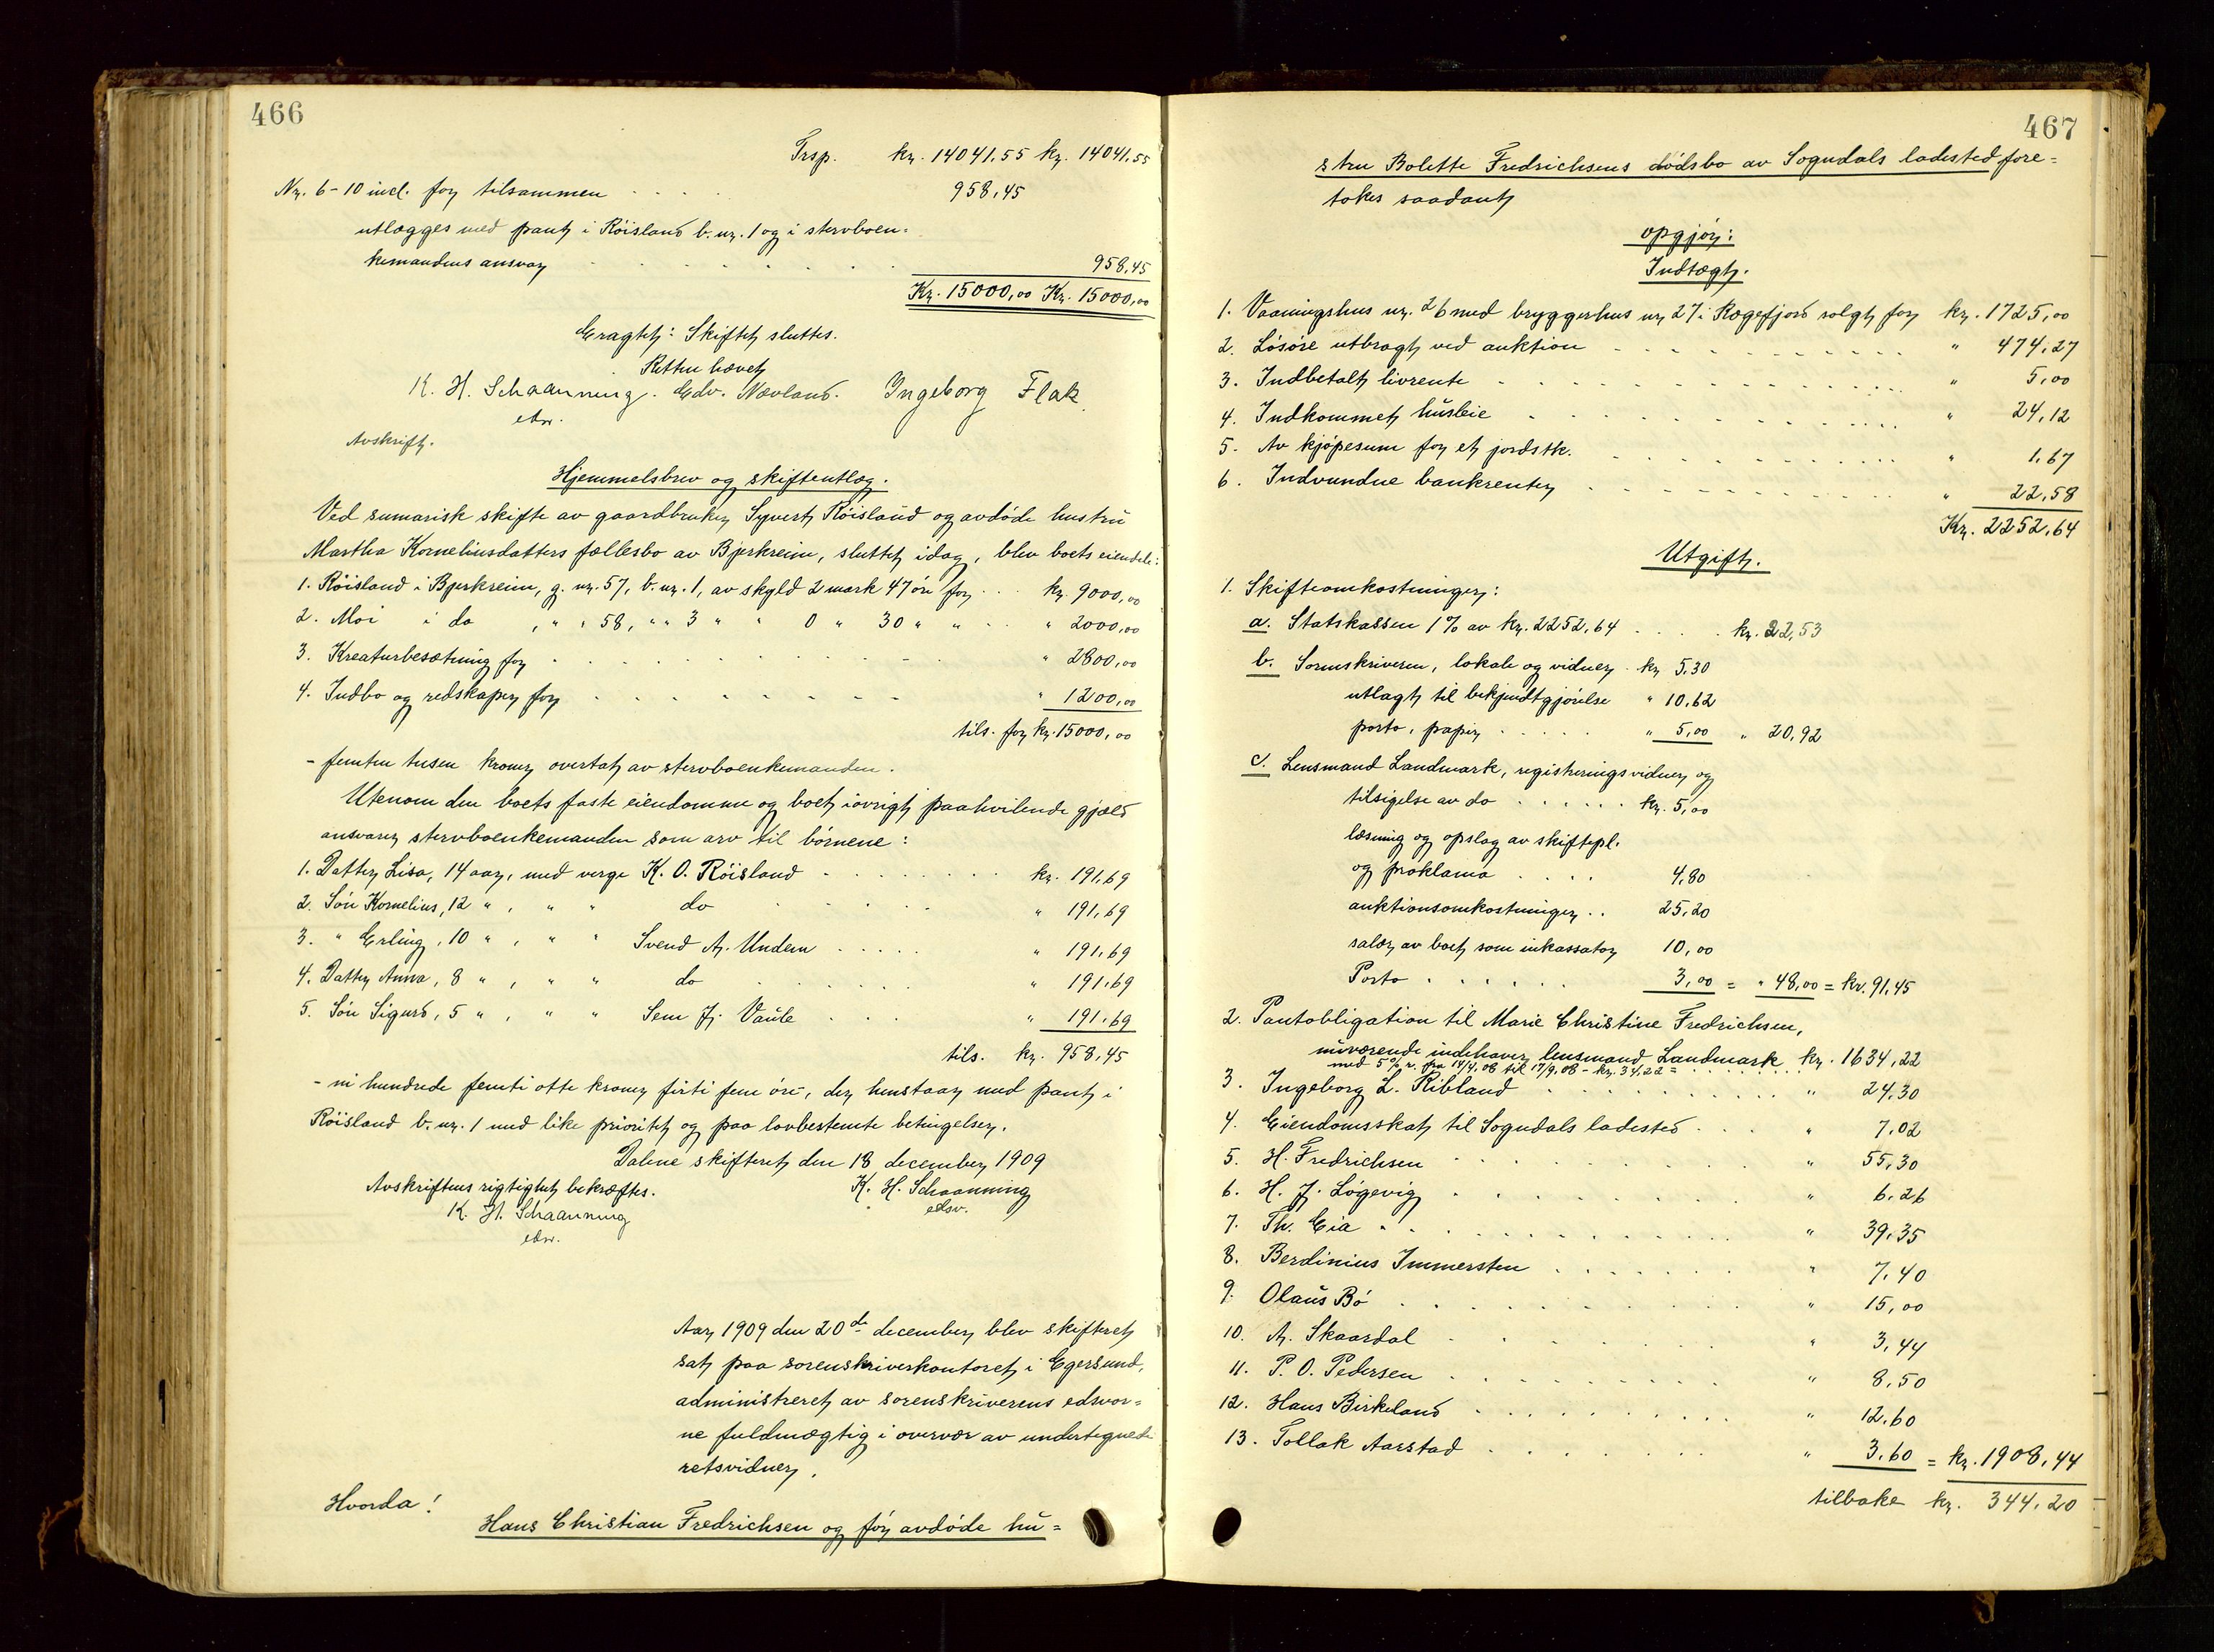 466
Trsp. kr. 14041.55 kr. 14041.55
Nr. 6-10 incl. for tilsammen 958,45
utlægges med pant i Röisland b. nr. 1 og i stervboen-
kemandens ansvar 958,45
Kr. 15000,00 Kr. 15000,00
Eragtet: Skiftet sluttes.
Retten hævet
K. H. Schaanning. Edv. Nævland. Ingeborg Flak
edsv.
Avskrift.
Hjemmelsbrev og skifteutlæg.
Ved sumarisk skifte av gaardbruker Syvert Röisland og avdöde hustru
Martha Korneliusdatters fællesbo av Bjerkreim, sluttet idag, blev boets eiendele:
1. Röisland i Bjerkreim, g. nr. 57, b. nr. 1, av skyld 2 mark 47 öre for kr. 9000,00
2. Moi i do " " 58, " " 3 " " 0 " 30 " " " 2000,00
3. Kreaturbesætning for " 2800,00
4. Indbo og redskaper for " 1200,00
tils. for kr. 15000,00
- femten tusen kroner overtat av stervboenkemanden.
Utenom den boets faste eiendomme og boet iövrigt paahvilende gjæld
ansvarer stervboenkemanden som arv til börnene:
1. Datter Lisa, 14 aar, med verge K. O. Röisland kr. 191,69
2. Sön Kornelius, 12 " , " " do " 191,69
3. " Erling, 10 " , " " Svend A. Undem " 191,69
4. Datter Anna, 8 " , " " do " 191,69
5. Sön Sigurd, 5 " , " " Sem J. Vaule " 191,69
tils. kr. 958,45
- ni hundrede femti otte kroner firti fem öre, der henstaar med pant i
Röisland b. nr. 1 med like prioritet og paa lovbestemte betingelser.
Dalene skifteret den 18 december 1909
Avskriftens rigtighet bekræftes. K. H. Schaanning
K. H. Schaanning edsv.
edsv.
Aar 1909 den 20de december blev skifteret
sat paa sorenskriverkontoret i Egersund,
administreret av sorenskriverens edsvor-
ne fuldmægtig i overvær av undertegnede
retsvidner.
Hvorda!
Hans Christian Fredrichsen og för avdöde hu=
467
stru Bolette Fredrichsens dödsbo av Sogndals ladested fore=
tokes saadant
opgjör:
Indtægt.
1. Vaaningshus nr. 26 med bryggerhus nr 27 i Rægefjord solgt for kr. 1725,00
2. Lösöre utbragt ved auktion " 474,27
3. Indbetalt livrente " 5,00
4. Indkommet husleie " 24,12
5. Av kjöpesum for et jordstk. " 1.67
6. Indvundne bankrenter " 22,58
Kr. 2252,64
Utgift.
1. Skifteomkostninger:
a. Statskassen 1% av kr. 2252,64 kr. 22,53
b. Sornskriveren, lokale og vidner kr 5,30
utlagt til bekjendtgjörelse " 10,62
porto, papir " 5,00 " 20,92
c. Lensmand Landmark, registreringsvidner og
tilsigelse av do kr. 5,00
læsning og opslag av skiftepl.
og proklama 4,80
auktionsomkostninger 25,20
salær av boet som inkassator 10,00
Porto 3,00 = " 48,00 = kr. 91,45
2. Pantobligation til Marie Christine Fredrichsen,
nuværende indehaver lensmand Landmark kr. 1634,22
med 5% r. fra 14/4.08 til 17/9.08 - kr. 34,22 =
3. Ingeborg L. Ribland " 24,30
4. Eiendomsskat til Sogndals ladested " 7.02
5. H. Fredrichsen " 55,30
6. H. J. Lögevig " 6.26
7. Th. Eia " 39,35
8. Berdinius Immersten " 7,40
9. Olaus Bö " 15,00
10. A. Skaardal " 3,44
11. P. O. Pedersen " 8,50
12. Hans Birkeland " 12,60
13. Tollak Aarstad " 3,60 = kr. 1908,44
tilbake kr. 344,20